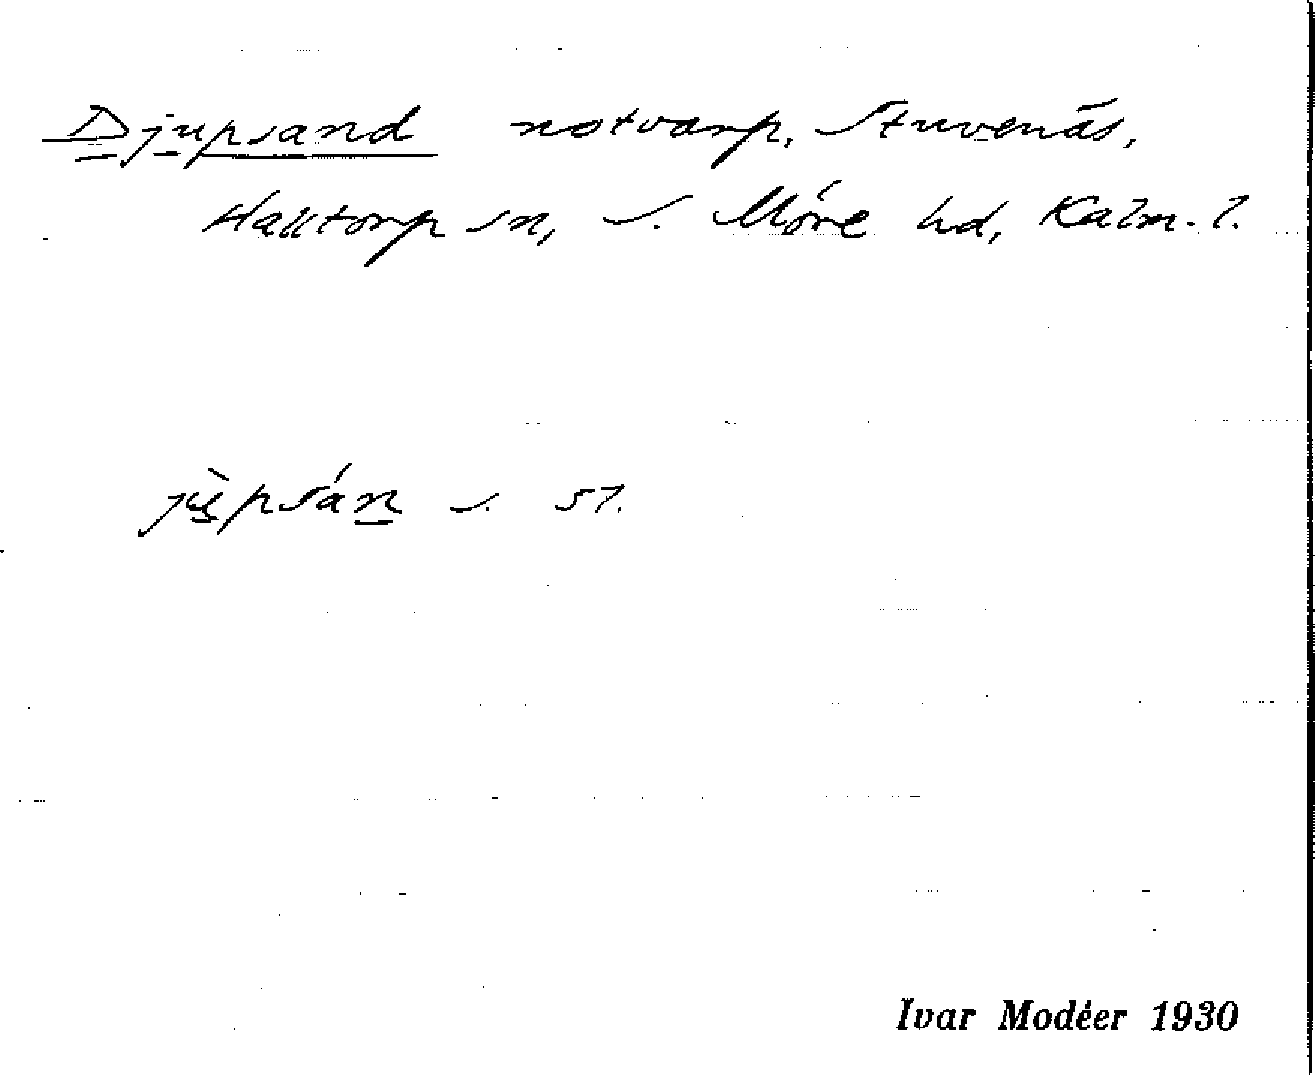 Djupsand notvarp, Stuvenäs,
Halltorp sn, S. Möre hd, Kalm. l.
jùpsán s. 57.
Ivar Modéer 1930